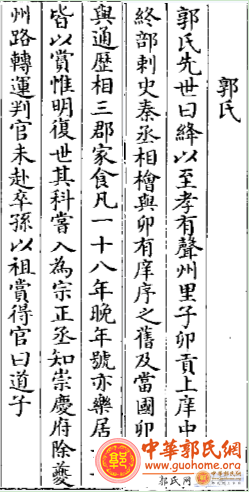 郭氏
郭氏先世曰絳以至孝有聲州里子卯貢上庠中
終部刺史秦丞相檜與卯有庠序之舊及當國卯
與通歷相三郡家食凡一十八年晚年號亦樂居
皆以賞惟明復世其科嘗入為宗正丞知崇慶府除夔
州路轉運判官未赴卒孫以祖賞得官曰道子
中華郭氏網
www.guohome.org
郭氏网